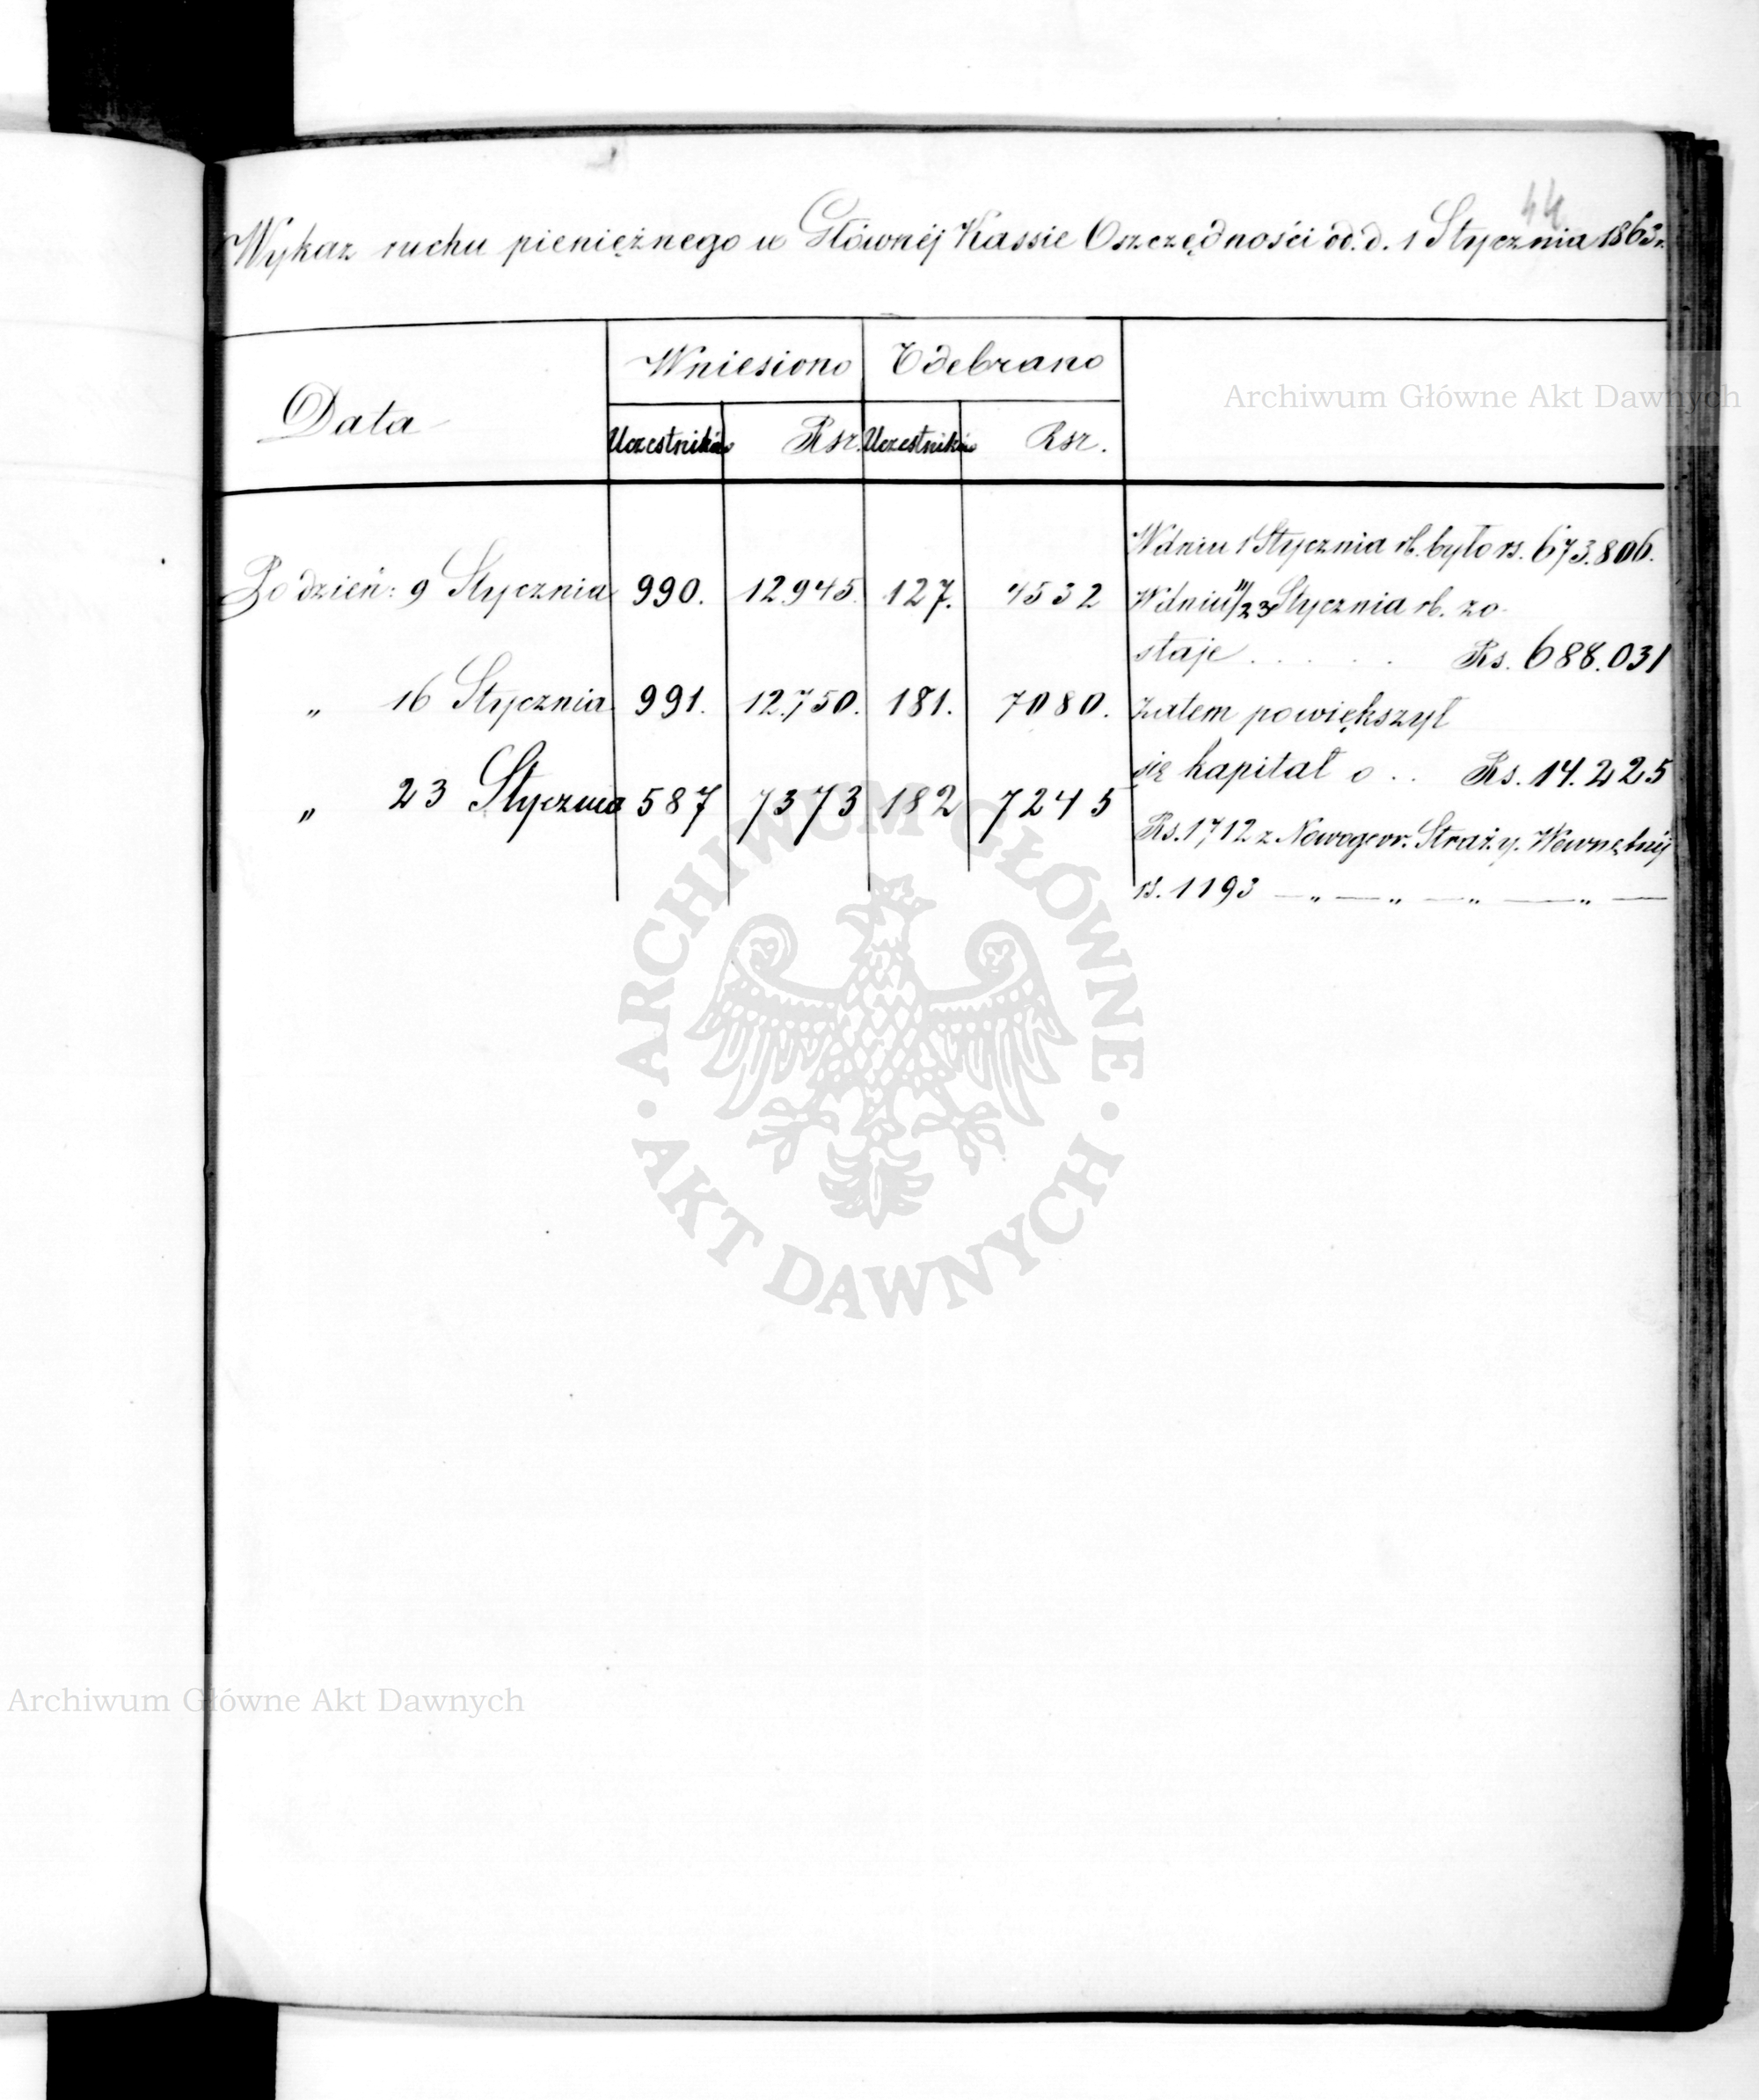 44
Wykaz ruchu pieniężnego w Głównéj Kassie Oszczędności od. d. 1 Stycznia 1863 r.
Data
Wniesiono Odebrano
Uczestników Rsr. Uczestników Rsr.
Po dzień: 9 Stycznia 990. 12945. 127. 4532
„ 16 Stycznia 991. 12.750. 181. 7080.
„ 23 Stycznia 587 7373 182 7245
W dniu 1 Stycznia rb. było rs. 673.806.
W dniu 11/23 Stycznia rb. zo-
staje . . . . . Rs. 688.031
Zatem powiększył
się kapitał o . . Rs. 14.225
Rs. 1712 z Nowogeor. Straży. Wewnętnéj
rs. 1193 — „ — „ — „ — „ —
Archiwum Główne Akt Dawnych
ARCHIWUM GŁÓWNE
AKT DAWNYCH
Archiwum Główne Akt Dawnych